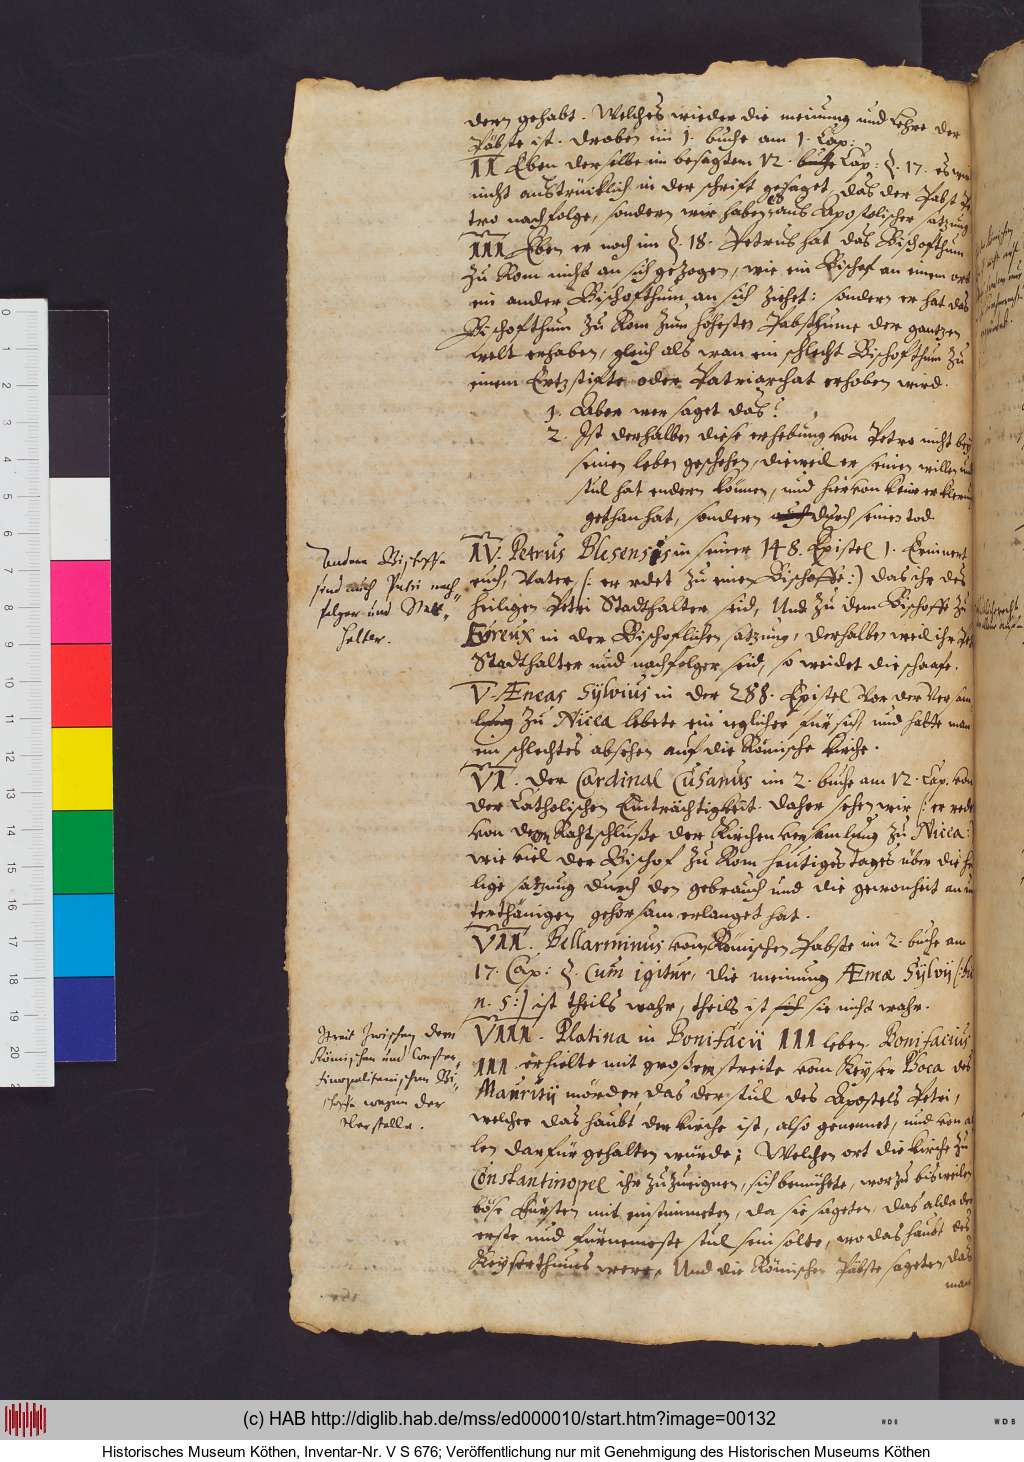 dern gehabt. Welches wieder die meinung und Lehre der
Päbste ist. droben im 1. buche am 1. Cap:
II Eben derselbe im besagtem 12. buche Cap: §. 17. es wird
nicht austrücklich in der schrifft gesaget, das der Pabst Pe
tro nachfolge, sondern wir haben es aus Apostolischer satzung
III Eben er noch im §. 18. Petrus hat das Bischofthum
zu Rom nicht an sich gezogen, wie ein Bischof an einem ort
ein ander Bischofthum an sich ziehet: sondern er hat das
Bischofthum zu Rom zum höhesten Pabsthume der gantzen
welt erhaben, gleich als wan ein schlecht Bischofthum zu
einem Ertzstifte oder Patriarchat erhoben wird.
1. Aber wer saget das?
2. Ist derhalben diese erhebung von Petro nicht bey
seinen leben geschehen, dieweil er seinen willen und
stul hat endern können, und hiervon keine erklerung
gethan hat, sondern auch durch seinen tod
Andere Bischoffe
sind auch Petri nach-
folger und Stat-
halter.
IV. Petrus Blesensis in seiner 148. Epistel 1. Erinnert
euch, Vater, (: er redet zu einen Bischoffe:) das ihr des
heiligen Petri Stadthalter seid, Und zu dem Bischoffe zu
Eureux in der Bischoflichen satzung, derhalben weil ihr Petri
Stadthalter und nachfolger seid, so weidet die schaafe.
V. Æneas Sylvius in der 288. Epistel vor der versam
lung zu Nicea lebete ein iglicher für sich, und hatte man
ein schlechtes absehen auf die Römische kirche.
VI. der Cardinal Cusanus im 2. buche am 12. Cap. von
der Catholischen Einträchtigkeit. daher sehen wir (: er redet
von dem Rahtschluße der Kirchenversamlung zu Nicea:)
wie viel der Bischof zu Rom heutiges tages über die hei
lige satzung durch den gebrauch und die gewonheit an un
terthänigen gehorsam erlanget hat.
VII. Bellarminus vom Römischen Pabste im 2. buche am
17. Cap: §. Cum igitur, die meinung Æneæ Sylvij (:bei
n. 5:) ist theils wahr, theils ist sich sie nicht wahr.
Streit zwischen dem
Römischen und Constan-
tinopolitanischen Bi-
schoffe wegen der
Oberstelle.
VIII. Platina in Bonifacii III leben. Bonifacius
III. erhielte mit großem streite vom Keyser Phoca des
Mauritij mörder, das der stul des Apostels Petri,
welcher das haubt der kirche ist, also genennet, und von al
len darfür gehalten würde; Welchen ort die kirche zu
Constantinopel ihr zuzueignen, sich bemühete, worzu bisweilen
böse fürsten mit einstimmeten, da sie sageten, das alda der
erste und fürnemeste stul sein solte, wo das haubt des
Keyserthums were. Und die Römischen Päbste sageten, das
man
(c) HAB http://diglib.hab.de/mss/ed000010/start.htm?image=00132
Historisches Museum Köthen, Inventar-Nr. V S 676; Veröffentlichung nur mit Genehmigung des Historischen Museums Köthen